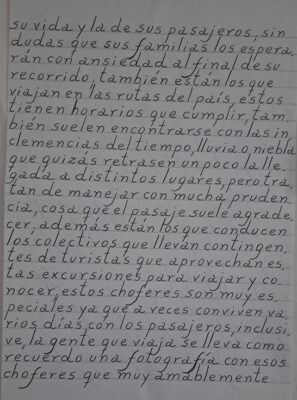 su vida y la de sus pasajeros, sin
dudas que sus familias los espera,
rán con ansiedad al final de su
recorrido, también están los que
viajan en las rutas del país, estos
tienen horarios que cumplir, tam,
bién suelen encontrarse con las in,
clemencias del tiempo, lluvia o niebla
que quizás retrasen un poco la lle,
gada a distintos lugares, pero tra,
tan de manejar con mucha pruden,
cia, cosa que el pasaje suele agrade,
cer, además están los que conducen
los colectivos que llevan contingen,
tes de turistas que aprovechan es,
tas excursiones para viajar y co,
nocer, estos choferes son muy es,
peciales ya que a veces conviven va,
rios días con los pasajeros, inclusi,
ve, la gente que viaja se lleva como
recuerdo una fotografía con esos
choferes que muy amablemente